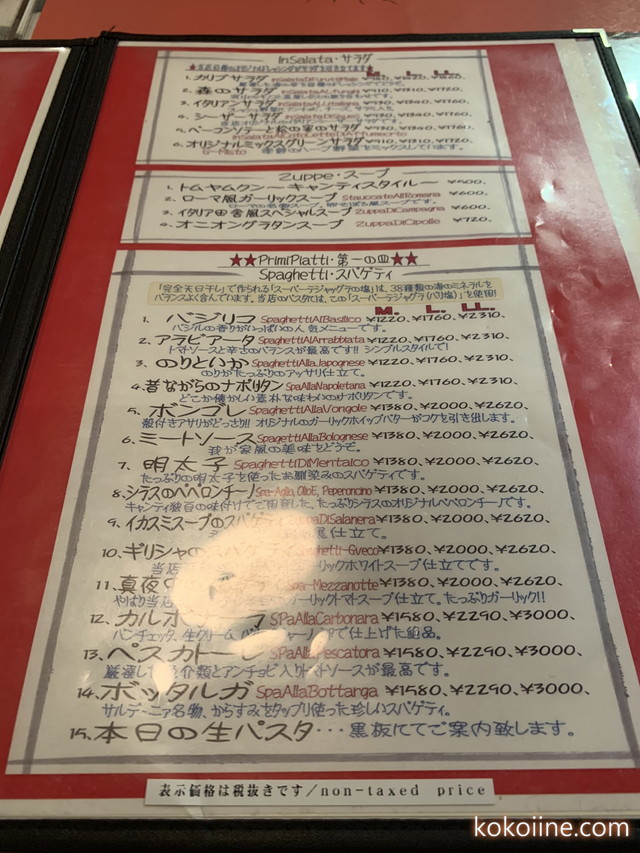 InSalata・サラダ
M. L. LL.
1. カリブサラダ
2. 森のサラダ InSalataAiFunghi
3. イタリアンサラダ InSalataAllItaliana
4. シーザーサラダ
5. ベーコンソテーと松の実のサラダ
6. オリジナルミックスグリーンサラダ
G-Misto 季節のハーブ野菜をミックスしています。
Zuppe・スープ
1. トムヤムクン〜キャンティスタイル〜
2. ローマ風ガーリックスープ StaucciateAllaRomana ¥600、
3. イタリア田舎風スペシャルスープ ZuppaDiCampagna ¥600、
4. オニオングラタンスープ ZuppaDiCipolle ¥720、
★★PrimiPiatti・第一の皿★★
Spaghetti・スパゲティ
「完全天日干し」で作られる「スーパーテジャクラの塩」は、38種類の海のミネラルを
バランスよく含んでいます。当店のパスタには、この「スーパーテジャグラ(バリ塩)」を使用!
M. L. LL.
1. バジリコ SpaghettiAlBasilico ¥1220、¥1760、¥2310、
バジルの香りがいっぱいの人気メニューです。
2. アラビアータ SpaghettiAlArrabbiata ¥1220、¥1760、¥2310、
トマトソースと辛さのバランスが最高です!! シンプルスタイルで!
3. のりといか SpaghettiAllaJapognese ¥1220、¥1760、¥2310、
のりがたっぷりのアッサリ仕立て。
4. 昔ながらのナポリタン SpaAllaNapoletana ¥1220、¥1760、¥2310、
どこか懐かしい素朴な味わいのナポリタンです。
5. ボンゴレ SpagettiAllaVongole ¥1380、¥2000、¥2620、
殻付きアサリがどっさり!! オリジナルのガーリックホイップバターがコクを引き出します。
6. ミートソース SpagettiAllaBolognese ¥1380、¥2000、¥2620、
我が家風の美味をどうぞ。
7. 明太子 SpaghettiDiMentaico ¥1380、¥2000、¥2620、
たっぷりの明太子を使ったお馴染みのスパゲティです。
8. シラスのペペロンチーノ Spa-Aglio, OlioE, Peperoncino ¥1380、¥2000、¥2620、
キャンティ独自の味付けでご用意した、たっぷりシラスのオリジナルペペロンチーノです。
9. イカスミスープのスパゲ DiSalanera ¥1380、¥2000、¥2620、
仕立て。
10. ギリシャの ghetti-Gveco ¥1380、¥2000、¥2620、
当店 リックホワイトスープ仕立てです。
11. 真夜 Spa-Mezzanotte ¥1380、¥2000、¥2620、
やはり当店 ガーリックトマトスープ仕立て。たっぷりガーリック!!
12. カルボ SPaAllaCarbonara ¥1580、¥2290、¥3000、
パンチェッタ、生クリーム で仕上げた絶品。
13. ペスカトーレ SPaAllaPescatora ¥1580、¥2290、¥3000、
厳選した 介類とアンチョビ入りトマトソースが最高です。
14. ボッタルガ SpaAllaBottarga ¥1580、¥2290、¥3000、
サルデーニァ名物、からすみをタップリ使った珍しいスパゲティ。
15. 本日の生パスタ… 黒板にてご案内致します。
表示価格は税抜きです/non-taxed price
kokoiine.com